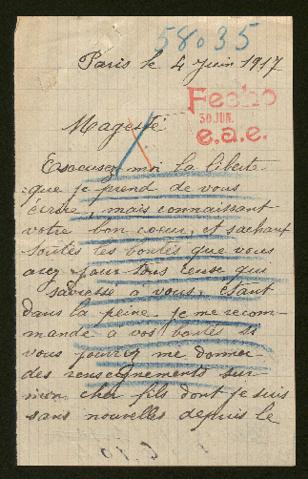 58035
Paris le 4 Juin 1917
Fecho
30 JUN.
e.a.e.
Magesté
Excusez moi la liberté
que je prend de vous
écrire, mais connaissant
votre bon coeur, et sachant
toutes les bontés que vous
avez pour tous ceuse qui
sadresse à vous. Etant
dans la peine je me recom-
mande à vos bontés si
vous pouvriez me donner
des renseignements sur
mon cher fils dont je suis
sans nouvelles depuis le